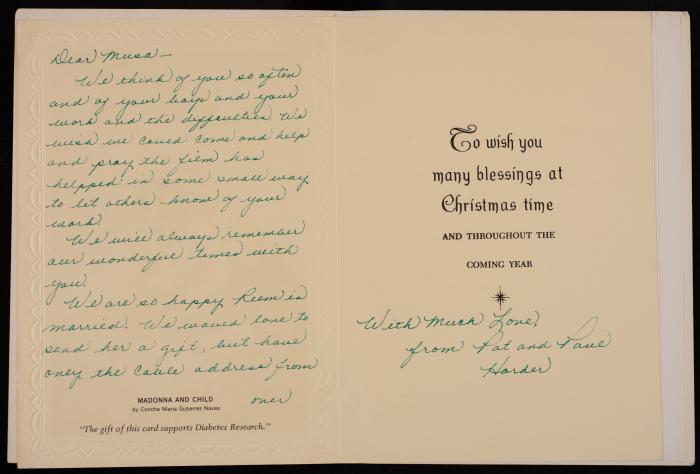 Dear Musa—
We think of you so often
and of your boys and your
work and the difficulties. We
wish we could come and help
and pray the film has
helpped in some small way
to let others know of your
work.
We will always remember
our wonderful times with
you.
We are so happy Reem is
married. We would love to
send her a gift, but have
only the Cable address from
over
MADONNA AND CHILD
by Concha Maria Gutierrez Navas
"The gift of this card supports Diabetes Research."
To wish you
many blessings at
Christmas time
AND THROUGHOUT THE
COMING YEAR
With Much Love,
from Pat and Paul
Harder